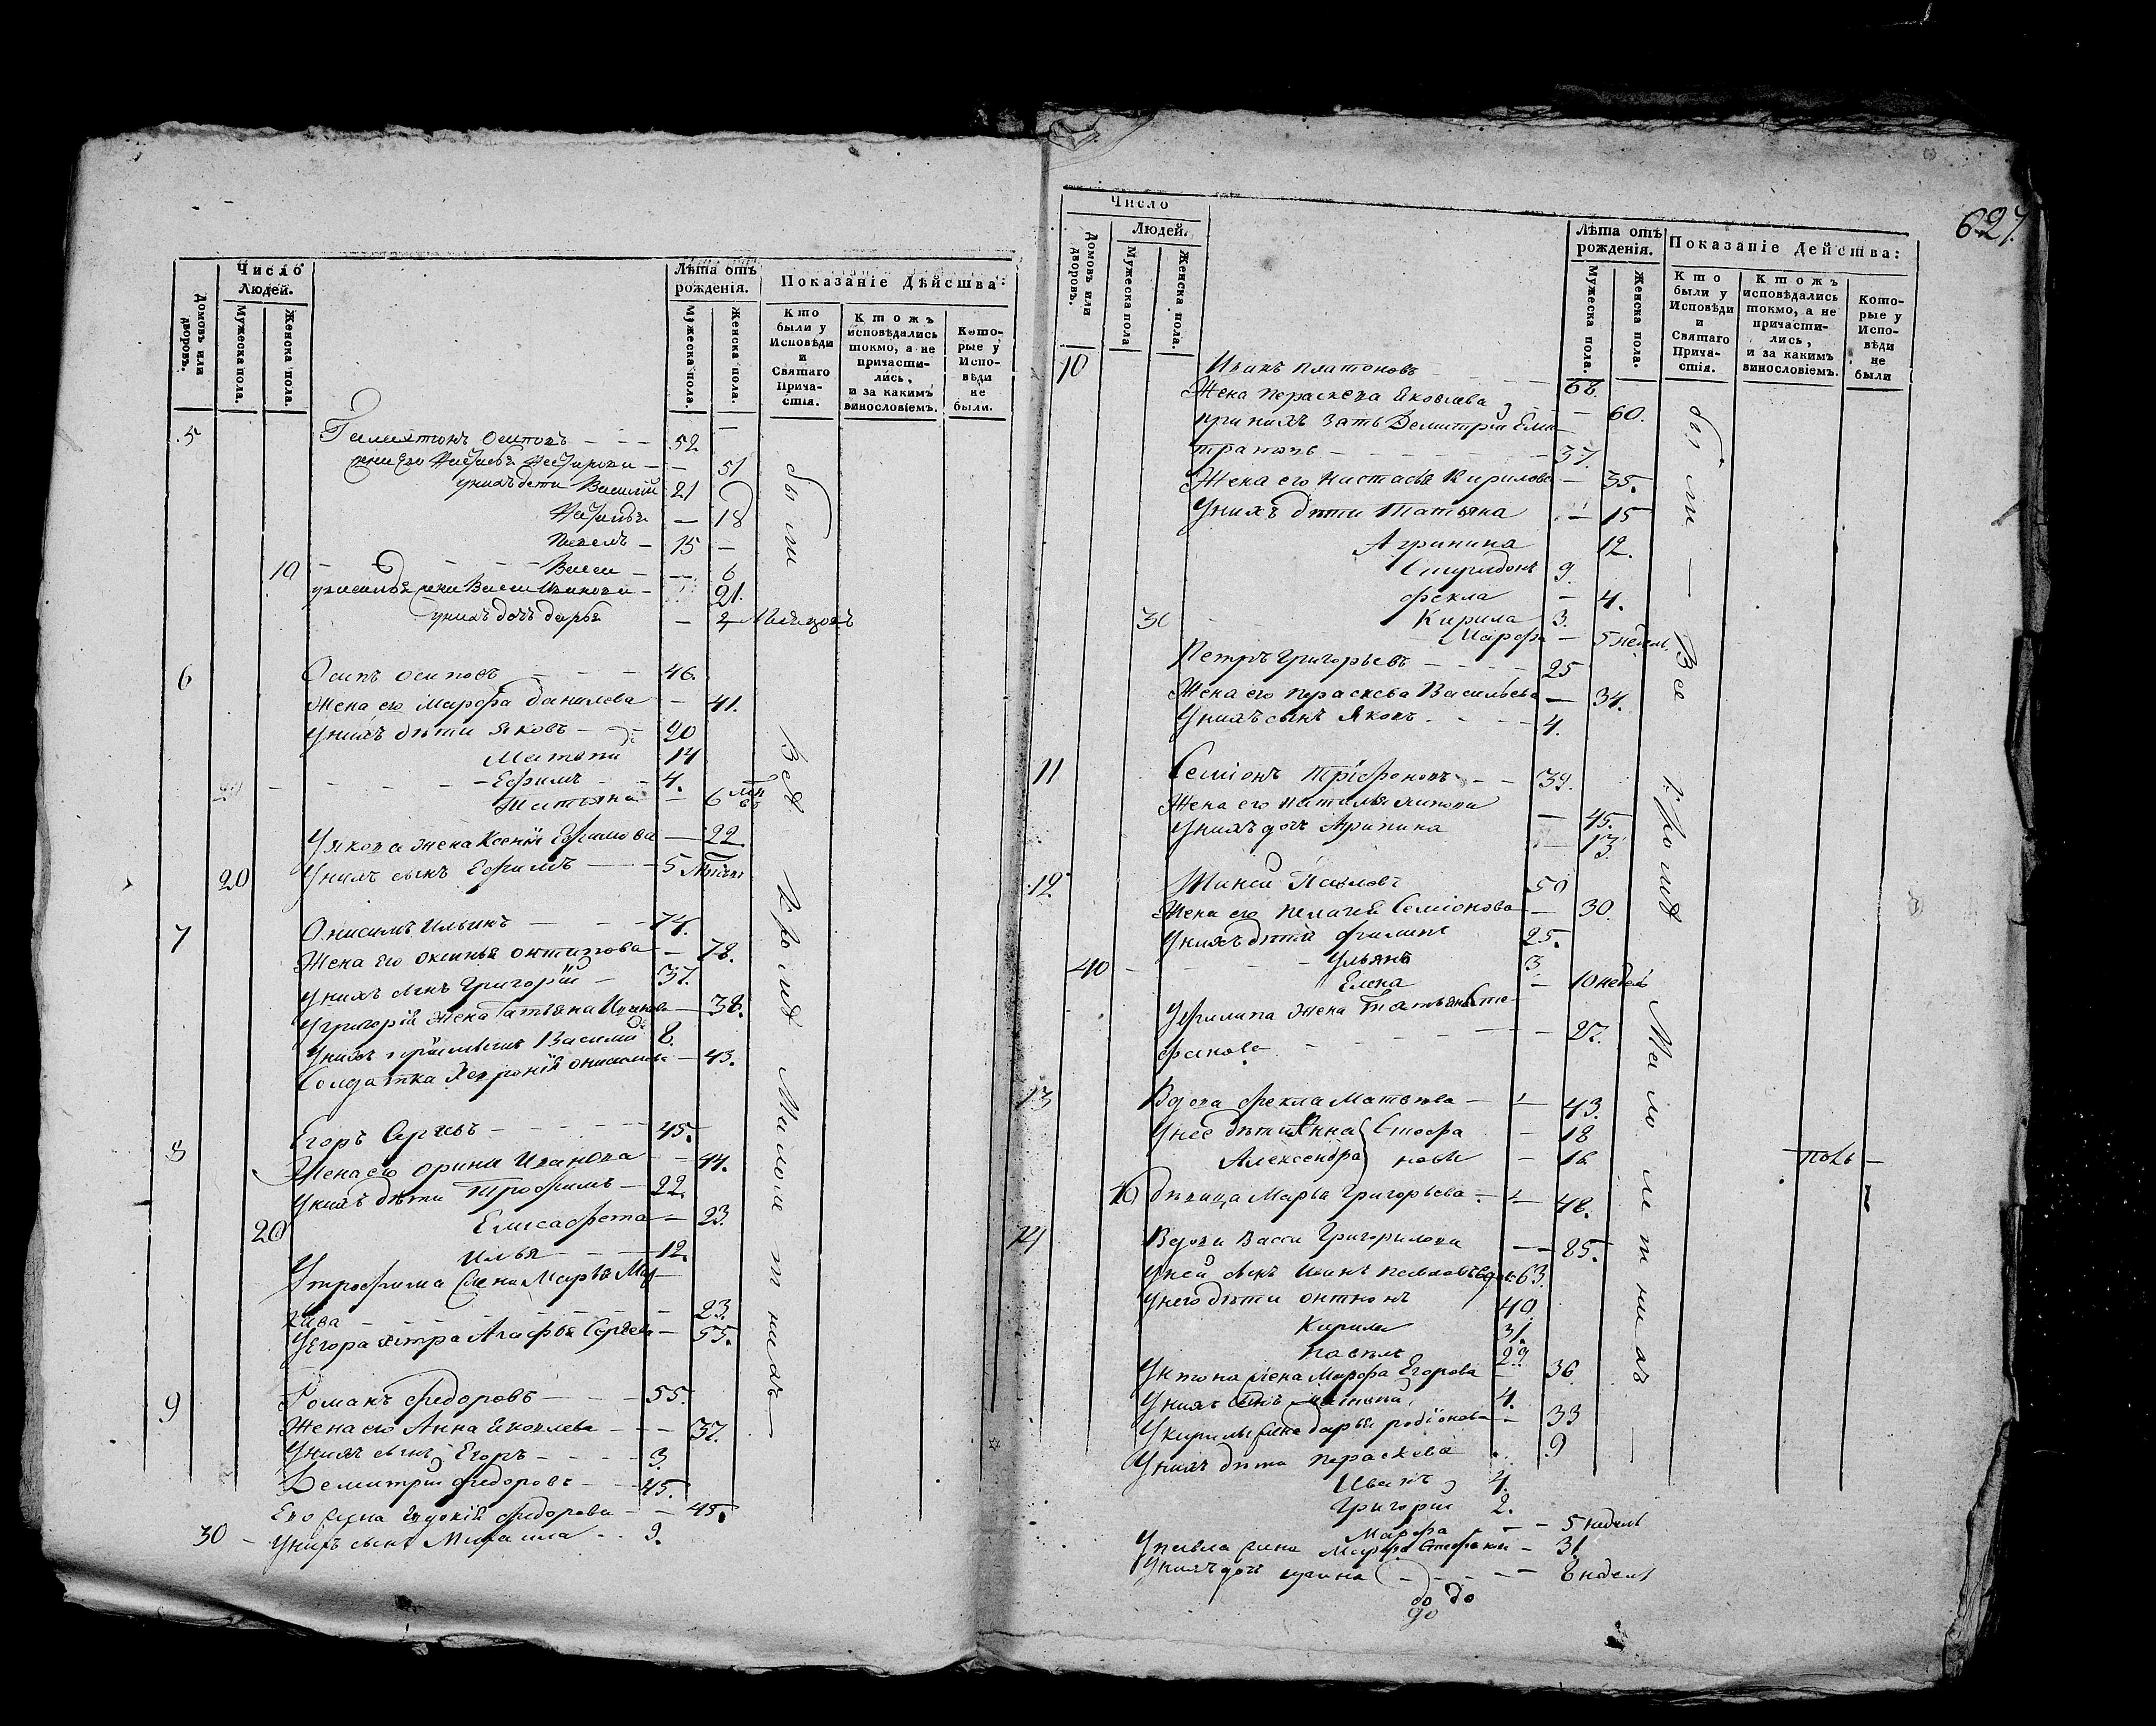 Число
Людей.
Домовъ или дворовъ.
Мужеска пола.
Женска пола.
Лѣта отъ рожденія.
Мужеска пола.
Женска пола.
Показаніе Дѣйства:
Кто были у Исповѣди и Святаго Причастія.
Ктожъ исповѣдались токмо, а не причастились, и за какимъ винословіемъ.
Которые у Исповѣди не были.
5 Осиповъ - - - 52
- 51
у нихъ дети Василий 21
- 18
Павелъ - 15 -
10 - 6
21.
у нихъ дочь дарья - 2
были
Всѣ Кромѣ Малолетнихъ
6 Осипъ осиповъ - - - 46.
Жена его Марфа данилова - 41.
У нихъ дѣти Яковъ - 20
Матвѣй 14
Ефимъ - 4.
Татьяна - 6
У якова жена Ксенія Ефимова - 22
20 У нихъ сынъ Ефимъ - 5
7 Онисимъ Ильинъ - - - 74.
Жена его Оксинья онтипова - 78.
У нихъ сынъ Григорій - 37.
У григорія жена Татьяна Иванова - 38.
У нихъ Василій 8.
Солдатка онисимова - 43.
8 Егоръ Сергѣвъ - - - 45.
Жена его Орина Иванова - 44.
У нихъ дѣти Трофимъ - 22.
20 Елисафета - 23.
Илья - - 12.
У трофима жена Марья Мар-
кава - - - - 23.
У Егора сестра Агафья Сергѣева - 55.
9 Романъ Федоровъ - - - 55.
Жена его Анна Яковлева - - 37.
У нихъ сынъ Егоръ - - - 3.
Демитрий Федоровъ - - 45.
Его жена Федорова - - 45.
30 - У нихъ сынъ Михаила - - 9.
627.
Число
Людей.
Домовъ или дворовъ.
Мужеска пола
Женска пола.
Лѣта отъ рожденія.
Мужеска пола.
Женска пола.
Показаніе Действа:
Кто были у Исповѣди и Святаго Причастія.
Ктожъ исповѣдались токмо, а не причастились, и за какимъ винословіемъ.
Которые у Исповѣди не были
10 Иванъ Платоновъ - - - 68.
Жена Пераскева Яковлева - 60.
при нихъ зять Демитрій Ели-
стратовъ - - - - 37.
Жена его Настасья Кирилова - 35.
У нихъ дѣти Татьяна - 15
Агрипина 12.
Спиридонъ 9.
Фекла - 4.
30 Кирила 3.
Марфа - 5 недель
Петръ Григорьевъ - - - - 25
Жена его Пераскева Васильева - 34.
У нихъ сынъ Яковъ - - - 4.
были - Все кромѣ Малолетнихъ -
11 Семіонъ Трифоновъ - - 39.
Жена его Наталья - 45.
У нихъ дочь Агрипина - 13.
12. Павловъ 50
Жена его Пелагея Семіонова - 30.
У нихъ дѣти Филипъ 25.
40 - - - Ульянъ 3.
Елена - 10 недель
У Филипа жена Татьяна Сте-
фанова - - - - 27.
13 Вдова Фекла Матвѣева - - 43.
У нее дѣти Анна Стефа - 18
Александра новы - 16
дѣвица Марья Григорьева - - 48.
14 Вдова Васса - - 85.
У ней сынъ Иванъ Павловъ вдов. 63.
У него дѣти Онтонъ 40
Кирила 31.
Павелъ 29
У онтона жена Марфа Егорова - 36
У нихъ сынъ 4.
У кирилы жена дарья родіонова - 33
У нихъ дѣти Пераскева . 9
Иванъ 4.
Григорій 2.
Марфа - - 5 недель
У павла жена Марфа Стефанова - 31.
У нихъ дочь - - - 8 недель